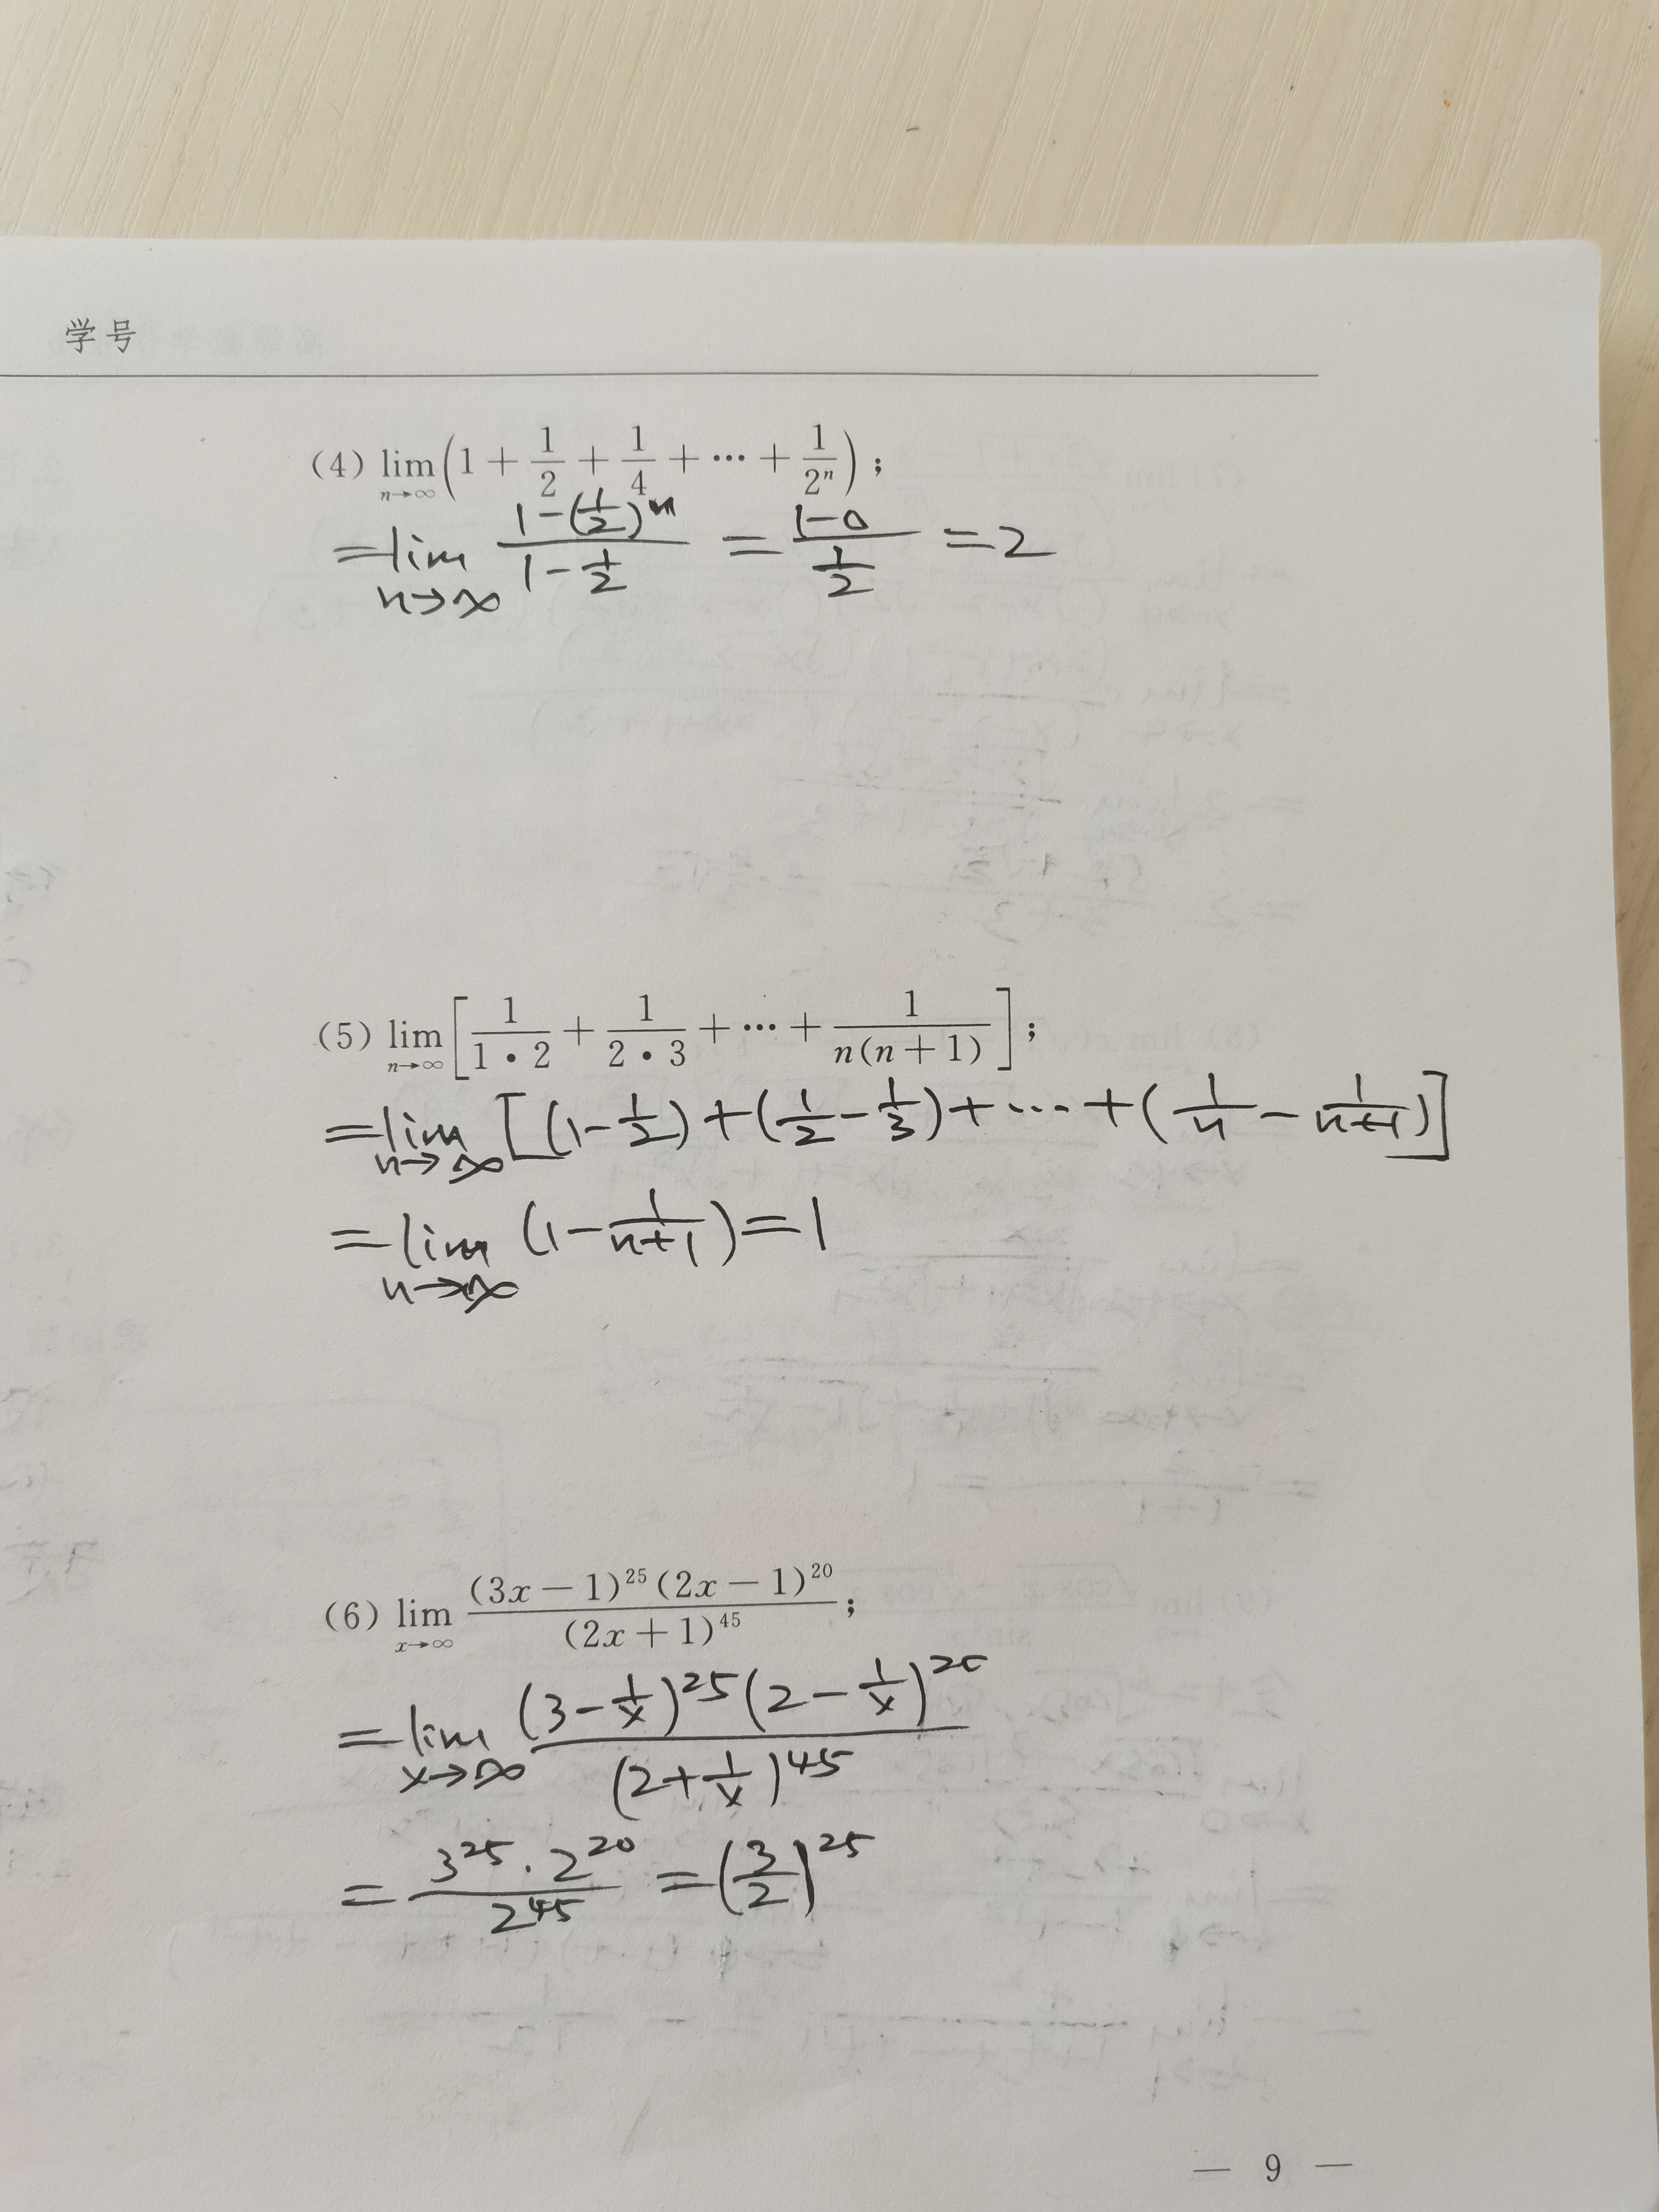 学号
(4) lim_{n→∞}(1 + 1/2 + 1/4 + ⋯ + 1/2^n);
= lim_{n→∞} (1-(1/2)^n)/(1-1/2) = (1-0)/(1/2) = 2
(5) lim_{n→∞}[1/(1·2) + 1/(2·3) + ⋯ + 1/(n(n+1))];
= lim_{n→∞} [(1-1/2)+(1/2-1/3)+⋯+(1/n-1/(n+1))]
= lim_{n→∞} (1-1/(n+1)) = 1
(6) lim_{x→∞} ((3x-1)^25 (2x-1)^20)/((2x+1)^45);
= lim_{x→∞} ((3-1/x)^25 (2-1/x)^20)/((2+1/x)^45)
= (3^25 · 2^20)/(2^45) = (3/2)^25
— 9 —